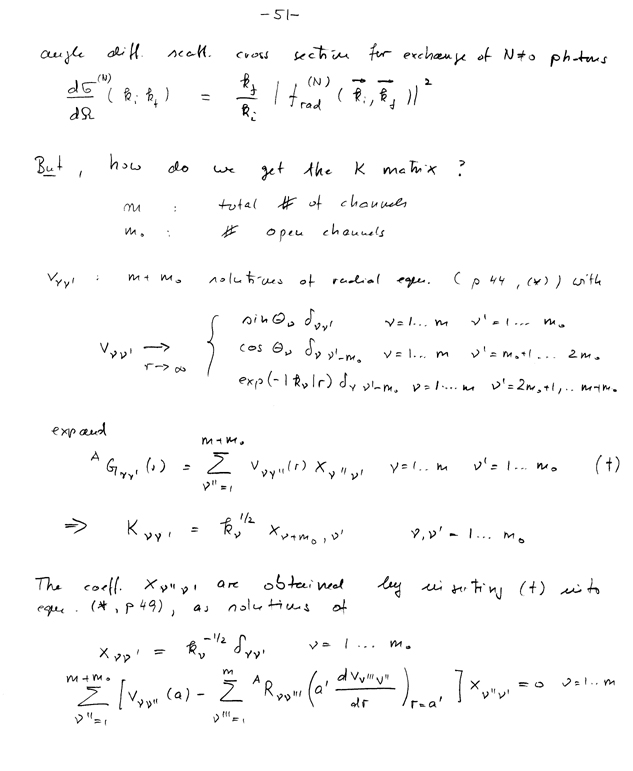 -51-
angle diff. scatt. cross section for exchange of N≠0 photons
dσ^(N)/dΩ (k_i k_f) = k_f/k_i | f_rad^(N) (k⃗_i, k⃗_f) |^2
But, how do we get the K matrix ?
m : total # of channels
m_o : # open channels
V_νν' : m+m_o solutions of radial equ. ( p 44, (*) ) with
V_νν' → (r→∞) { sin Θ_ν δ_νν' ν=1...m ν'=1...m_o
cos Θ_ν δ_ν ν'-m_o ν=1...m ν'=m_o+1...2m_o
exp(-|k_ν|r) δ_ν ν'-m_o ν=1...m ν'=2m_o+1,..m+m_o
expand
^A G_νν'(r) = Σ_{ν''=1}^{m+m_o} V_νν''(r) X_ν''ν' ν=1..m ν'=1...m_o (†)
⇒ K_νν' = k_ν^{1/2} X_{ν+m_o,ν'} ν,ν'=1...m_o
The coeff. X_ν''ν' are obtained by inserting (†) into
equ. (*, p 49), as solutions of
X_νν' = k_ν^{-1/2} δ_νν' ν=1...m_o
Σ_{ν''=1}^{m+m_o} [ V_νν''(a) - Σ_{ν'''=1}^{m} ^A R_νν''' (a' dV_ν'''ν''/dr)_{r=a'} ] X_ν''ν' = 0 ν=1..m